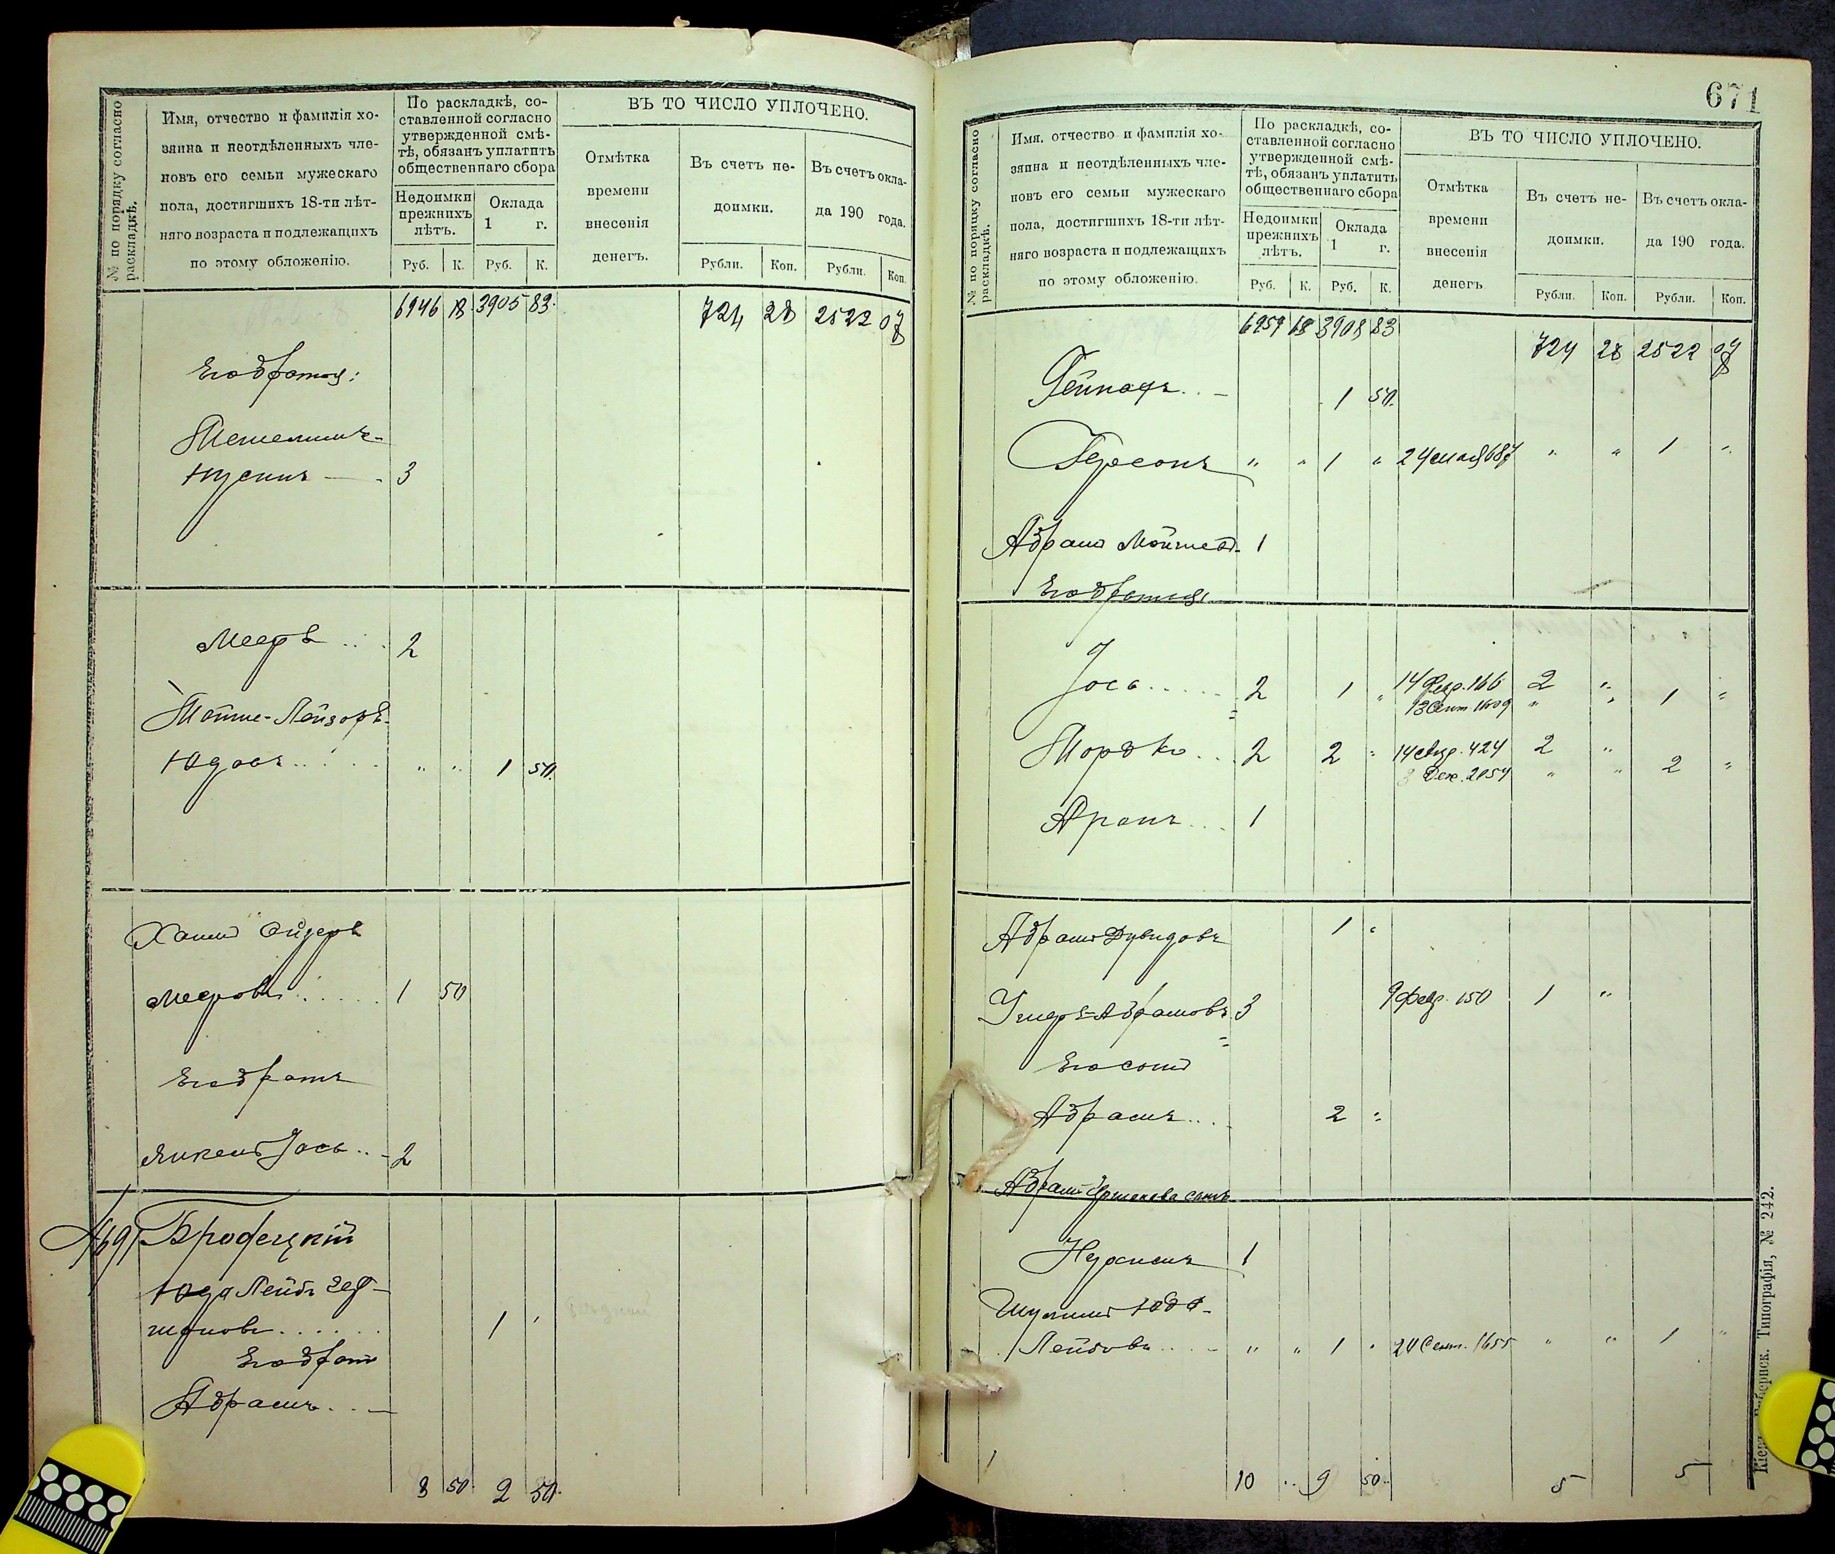 № по порядку согласно раскладкѣ.
Имя, отчество и фамилія хо-
зяина и неотдѣленныхъ чле-
новъ его семьи мужескаго
пола, достигшихъ 18-ти лѣт-
няго возраста и подлежащихъ
по этому обложенію.
По раскладкѣ, со-
ставленной согласно
утвержденной смѣ-
тѣ, обязанъ уплатить
общественнаго сбора
Недоимки
прежнихъ
лѣтъ.
Оклада
1 г.
Руб. К. Руб. К.
ВЪ ТО ЧИСЛО УПЛОЧЕНО.
Отмѣтка
времени
внесенія
денегъ.
Въ счетъ не-
доимки.
Въ счетъ окла-
да 190 года.
Рубли. Коп. Рубли. Коп.
6946 18 3905 83 724 28 2522 07
Его братья:
Юсинъ 3
Мееръ 2
Мошко-Лейзоръ
1 50
Меерова 1 50
Его братъ
Янкель Іось 2
Бродецкій
Юда Лейбъ Гер-
шковъ 1
Его братъ
Абрамъ
3 50 2 50
671
№ по порядку согласно раскладкѣ.
Имя, отчество и фамилія хо-
зяина и неотдѣленныхъ чле-
новъ его семьи мужескаго
пола, достигшихъ 18-ти лѣт-
няго возраста и подлежащихъ
по этому обложенію.
По раскладкѣ, со-
ставленной согласно
утвержденной смѣ-
тѣ, обязанъ уплатить
общественнаго сбора
Недоимки
прежнихъ
лѣтъ.
Оклада
1 г.
Руб. К. Руб. К.
ВЪ ТО ЧИСЛО УПЛОЧЕНО.
Отмѣтка
времени
внесенія
денегъ
Въ счетъ не-
доимки.
Въ счетъ окла-
да 190 года.
Рубли. Коп. Рубли. Коп.
6959 18 3908 83 724 28 2522 07
1 50
Герсонъ " " 1 " 24 мая 687 " " 1 "
Абрамъ 1
Его братья
Іось 2 1 " 14 Февр. 166 2 "
13 Сент. 1609 " " 1 "
Мордко 2 2 " 14 Апр. 424 2 "
Дек. 2054 " " 2 "
Аронъ 1
Абрамъ Дувидовъ 1 "
Умеръ-Абрамовъ 3 9 февр. 150 1 "
Его сынъ
Абрамъ 2 "
Абрамъ Гершкова сынъ
1
Шулимъ Юда-
Лейбовъ " " 1 " 20 Сент. 1655 " " 1 "
10 " 9 50 5 5
Типографія, № 242.